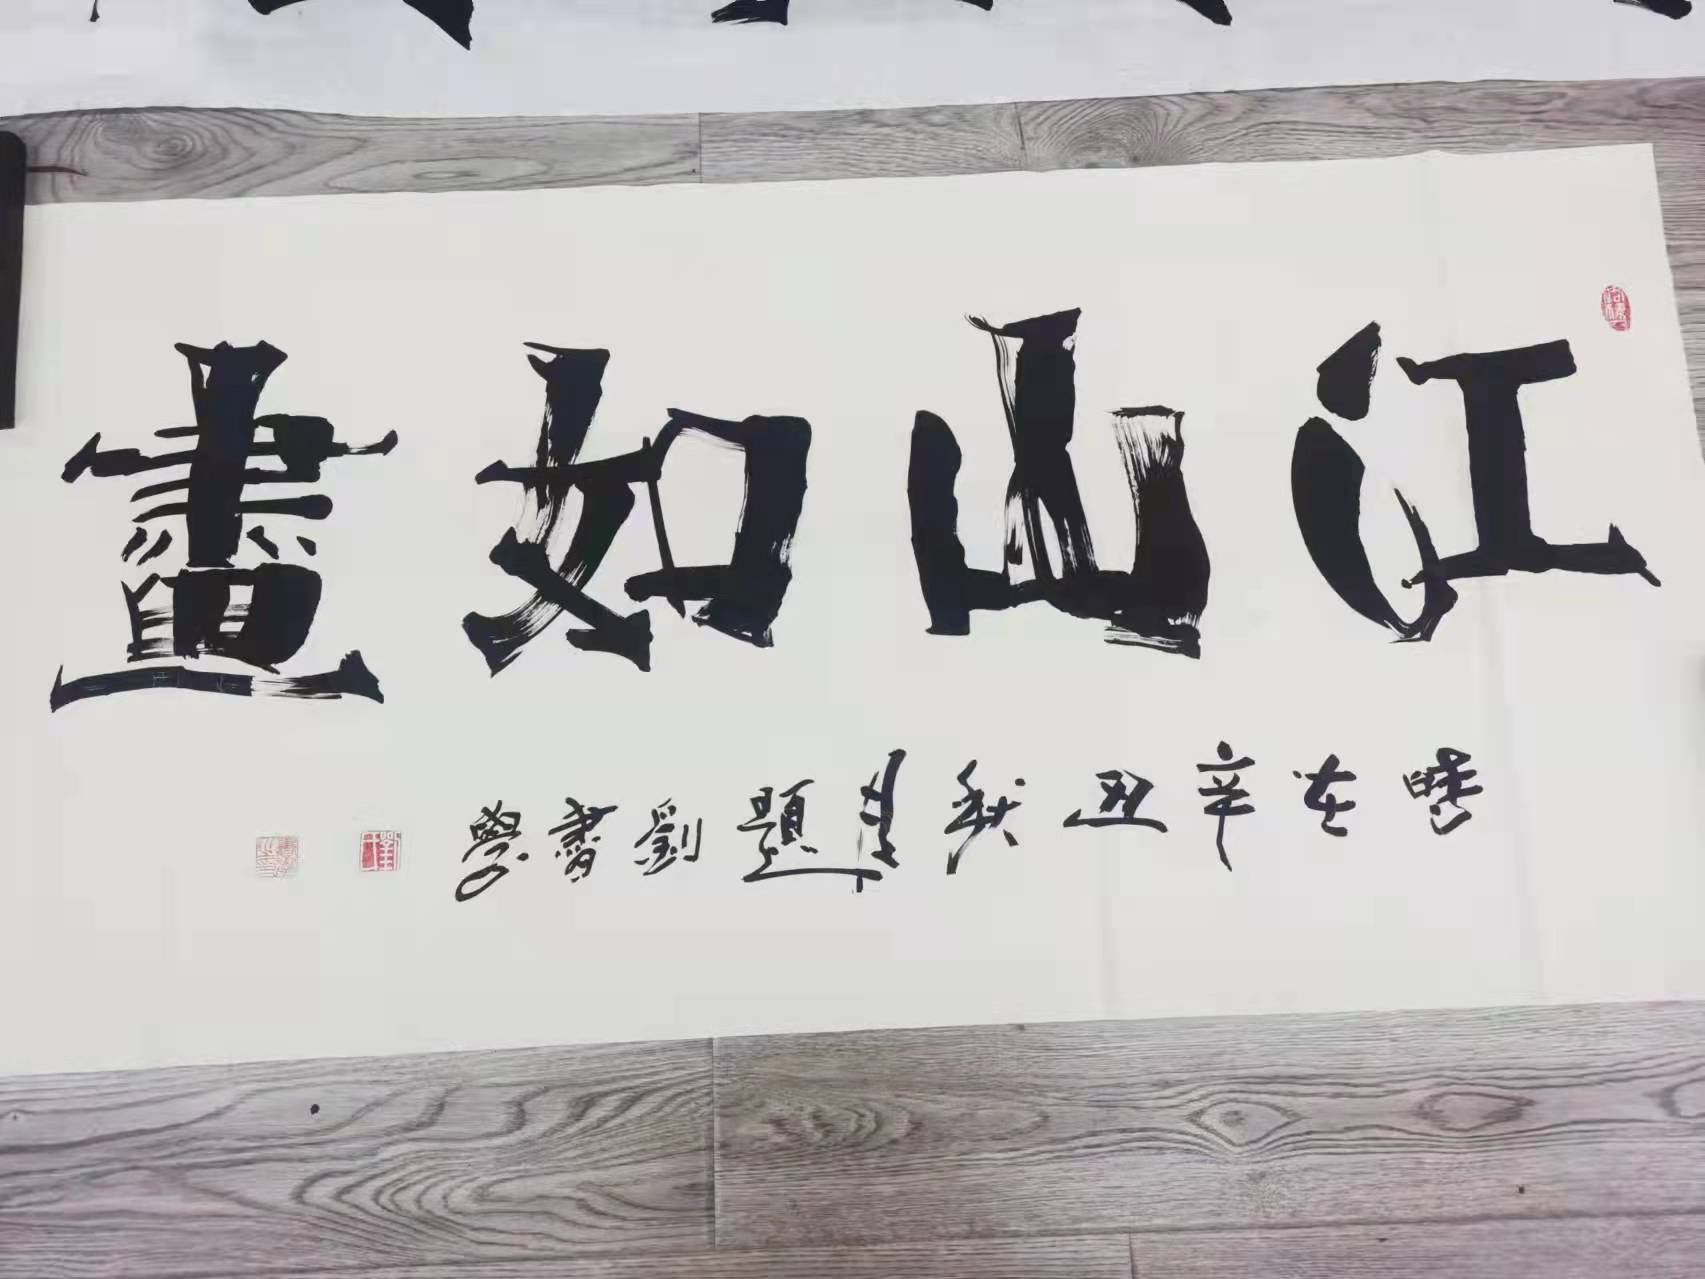 江山如畫
時在辛丑秋月題劉書學